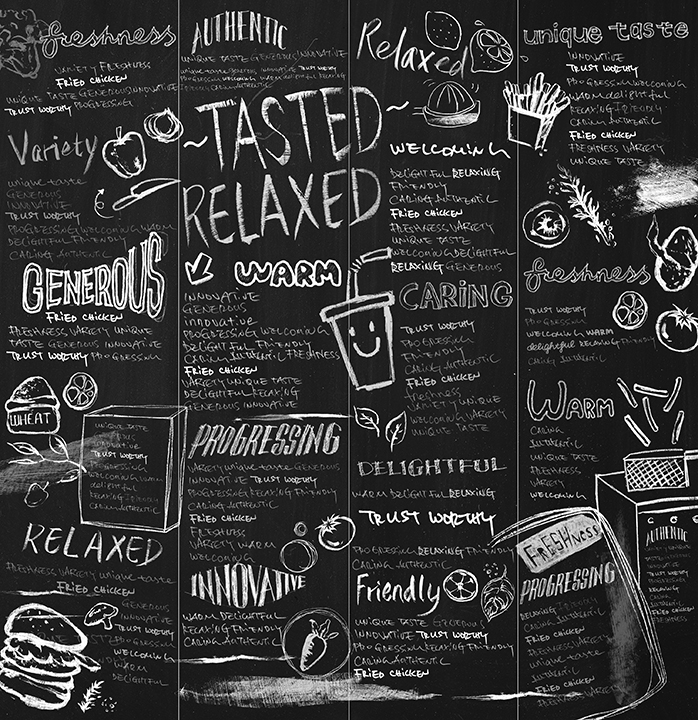 freshness
Variety Freshness
FRIED CHICKEN
UNIQUE TASTE GENEROUS INNOVATIVE
TRUST WORTHY PROGRESSING
Variety
unique taste
GENEROUS
INNOVATIVE
TRUST WORTHY
PROGRESSING WELCOMING WARM
DELIGHTFUL FRIENDLY
CARING AUTHENTIC
GENEROUS
FRIED CHICKEN
FRESHNESS VARIETY UNIQUE
TASTE GENEROUS INNOVATIVE
TRUST WORTHY PROGRESSING
WHEAT
UNIQUE TASTE
INNOVATIVE
TRUST WORTHY
PROGRESSING
WELCOMING WARM
DELIGHTFUL
RELAXING FRIENDLY
CARING AUTHENTIC
RELAXED
FRESHNESS VARIETY unique taste
FRIED CHICKEN
GENEROUS
INNOVATIVE
TRUST WORTHY
PROGRESSING
WELCOMING
WARM
DELIGHTFUL
AUTHENTIC
UNIQUE TASTE GENEROUS INNOVATIVE
~TASTED~
RELAXED
WARM
INNOVATIVE
GENEROUS
innovative
PROGRESSING WELCOMING
DELIGHTFUL FRIENDLY
CARING AUTHENTIC FRESHNESS
FRIED CHICKEN
VARIETY UNIQUE TASTE
DELIGHTFUL RELAXING
GENEROUS INNOVATIVE
PROGRESSING
VARIETY unique taste GENEROUS
INNOVATIVE TRUST WORTHY
PROGRESSING RELAXING FRIENDLY
CARING AUTHENTIC
FRIED CHICKEN
FRESHNESS
VARIETY WARM
WELCOMING
INNOVATIVE
WARM DELIGHTFUL
RELAXING FRIENDLY
CARING AUTHENTIC
Relaxed
WELCOMING
DELIGHTFUL RELAXING
FRIENDLY
CARING AUTHENTIC
FRIED CHICKEN
FRESHNESS VARIETY
UNIQUE TASTE
WELCOMING DELIGHTFUL
RELAXING GENEROUS
CARING
TRUST WORTHY
PROGRESSING
FRIENDLY
CARING AUTHENTIC
FRIED CHICKEN
freshness
VARIETY UNIQUE
WELCOMING VARIETY
UNIQUE TASTE
DELIGHTFUL
WARM DELIGHTFUL RELAXING
TRUST WORTHY
PROGRESSING RELAXING FRIENDLY
CARING AUTHENTIC
Friendly
UNIQUE TASTE GENEROUS
INNOVATIVE TRUST WORTHY
PROGRESSING FRIENDLY
CARING AUTHENTIC
FRIED CHICKEN
unique taste
INNOVATIVE
TRUST WORTHY
PROGRESSING WELCOMING
WARM delightful
RELAXING FRIENDLY
CARING AUTHENTIC
FRIED CHICKEN
FRESHNESS VARIETY
UNIQUE TASTE
freshness
TRUST WORTHY
PROGRESSING
WELCOMING WARM
delightful RELAXING FRIENDLY
CARING AUTHENTIC
WARM
CARING
AUTHENTIC
UNIQUE TASTE
FRESHNESS
VARIETY
WELCOMING
AUTHENTIC
FRESHNESS
PROGRESSING
RELAXING FRIENDLY
CARING AUTHENTIC
FRIED CHICKEN
FRESHNESS VARIETY
unique taste
AUTHENTIC
FRIED CHICKEN